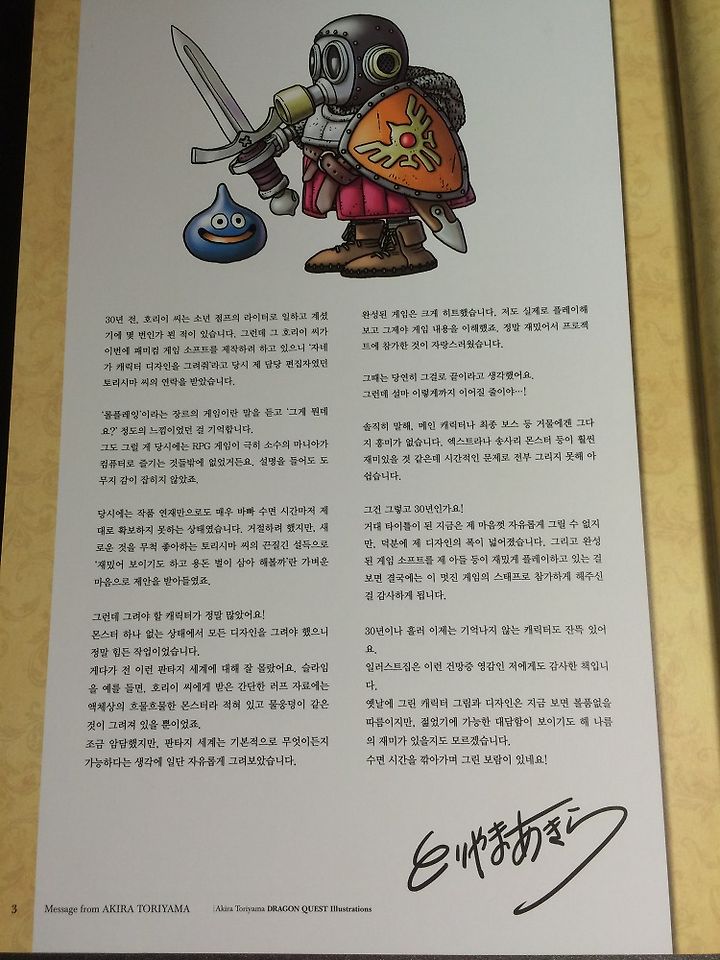 30년 전, 호리이 씨는 소년 점프의 라이터로 일하고 계셨
기에 몇 번인가 뵌 적이 있습니다. 그런데 그 호리이 씨가
이번에 패미컴 게임 소프트를 제작하려 하고 있으니 '자네
가 캐릭터 디자인을 그려줘'라고 당시 제 담당 편집자였던
토리시마 씨의 연락을 받았습니다.
'롤플레잉'이라는 장르의 게임이란 말을 듣고 '그게 뭔데
요?' 정도의 느낌이었던 걸 기억합니다.
그도 그럴 게 당시에는 RPG 게임이 극히 소수의 마니아가
컴퓨터로 즐기는 것들밖에 없었거든요. 설명을 들어도 도
무지 감이 잡히지 않았죠.
당시에는 작품 연재만으로도 매우 바빠 수면 시간마저 제
대로 확보하지 못하는 상태였습니다. 거절하려 했지만, 새
로운 것을 무척 좋아하는 토리시마 씨의 끈질긴 설득으로
'재밌어 보이기도 하고 용돈 벌이 삼아 해볼까'란 가벼운
마음으로 제안을 받아들였죠.
그런데 그려야 할 캐릭터가 정말 많았어요!
몬스터 하나 없는 상태에서 모든 디자인을 그려야 했으니
정말 힘든 작업이었습니다.
게다가 전 이런 판타지 세계에 대해 잘 몰랐어요. 슬라임
을 예를 들면, 호리이 씨에게 받은 간단한 러프 자료에는
액체상의 흐물흐물한 몬스터라 적혀 있고 물웅덩이 같은
것이 그려져 있을 뿐이었죠.
조금 암담했지만, 판타지 세계는 기본적으로 무엇이든지
가능하다는 생각에 일단 자유롭게 그려보았습니다.
완성된 게임은 크게 히트했습니다. 저도 실제로 플레이해
보고 그제야 게임 내용을 이해했죠. 정말 재밌어서 프로젝
트에 참가한 것이 자랑스러웠습니다.
그때는 당연히 그걸로 끝이라고 생각했어요.
그런데 설마 이렇게까지 이어질 줄이야…!
솔직히 말해, 메인 캐릭터나 최종 보스 등 거물에겐 그다
지 흥미가 없습니다. 엑스트라나 송사리 몬스터 등이 훨씬
재미있을 것 같은데 시간적인 문제로 전부 그리지 못해 아
쉽습니다.
그건 그렇고 30년인가요!
거대 타이틀이 된 지금은 제 마음껏 자유롭게 그릴 수 없지
만, 덕분에 제 디자인의 폭이 넓어졌겠습니다. 그리고 완성
된 게임 소프트를 제 아들 등이 재밌게 플레이하고 있는 걸
보면 결국에는 이 멋진 게임의 스태프로 참가하게 해주신
걸 감사하게 됩니다.
30년이나 흘러 이제는 기억나지 않는 캐릭터도 잔뜩 있어
요.
일러스트집은 이런 건망증 영감인 저에게도 감사한 책입니
다.
옛날에 그린 캐릭터 그림과 디자인은 지금 보면 볼품없을
따름이지만, 젊었기에 가능한 대담함이 보이기도 해 나름
의 재미가 있을지도 모르겠습니다.
수면 시간을 깎아가며 그린 보람이 있네요!
とりやまあきら
3 Message from AKIRA TORIYAMA |Akira Toriyama DRAGON QUEST Illustrations